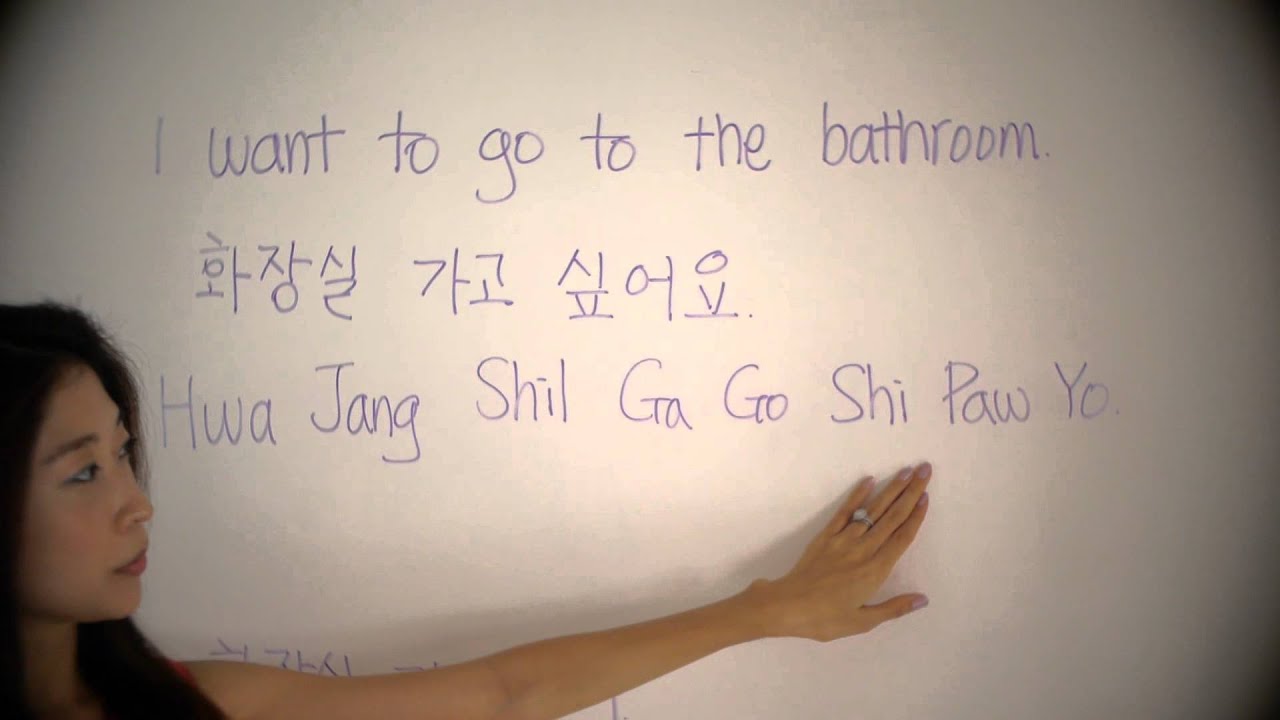 I want to go to the bathroom.
화장실 가고 싶어요.
Hwa Jang Shil Ga Go Shi Paw Yo.
화장실